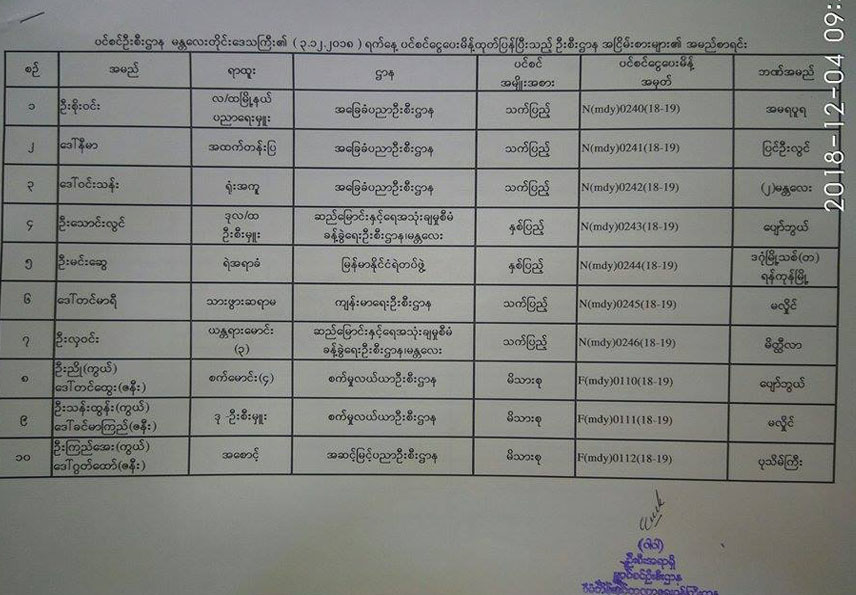 ပင်စင်ဦးစီးဌာန မန္တလေးတိုင်းဒေသကြီး၏ ( ၃.၁၂.၂၀၁၈ ) ရက်နေ့ ပင်စင်ငွေပေးမိန့်ထုတ်ပြန်ပြီးသည့် ဦးစီးဌာန အငြိမ်းစားများ၏ အမည်စာရင်း
စဉ် အမည် ရာထူး ဌာန ပင်စင် အမျိုးအစား ပင်စင်ငွေပေးမိန့် အမှတ် ဘဏ်အမည်
၁ ဦးစိုးဝင်း လ/ထမြို့နယ် ပညာရေးမှူး အခြေခံပညာဦးစီးဌာန သက်ပြည့် N(mdy)0240(18-19) အမရပူရ
၂ ဒေါ်နီမာ အထက်တန်းပြ အခြေခံပညာဦးစီးဌာန သက်ပြည့် N(mdy)0241(18-19) ပြင်ဦးလွင်
၃ ဒေါ်ဝင်းသန်း ရုံးအကူ အခြေခံပညာဦးစီးဌာန သက်ပြည့် N(mdy)0242(18-19) (၂)မန္တလေး
၄ ဦးသောင်းလွင် ဒုလ/ထ ဦးစီးမှူး ဆည်မြောင်းနှင့်ရေအသုံးချမှုစီမံ ခန့်ခွဲရေးဦးစီးဌာန၊မန္တလေး နှစ်ပြည့် N(mdy)0243(18-19) ပျော်ဘွယ်
၅ ဦးမင်းဆွေ ရဲအရာခံ မြန်မာနိုင်ငံရဲတပ်ဖွဲ့ နှစ်ပြည့် N(mdy)0244(18-19) ဒဂုံမြို့သစ်(တ) ရန်ကုန်မြို့
၆ ဒေါ်တင်မာရီ သားဖွားဆရာမ ကျန်းမာရေးဦးစီးဌာန သက်ပြည့် N(mdy)0245(18-19) မလှိုင်
၇ ဦးလှဝင်း ယန္တရားမောင်း (၃) ဆည်မြောင်းနှင့်ရေအသုံးချမှုစီမံ ခန့်ခွဲရေးဦးစီးဌာန၊မန္တလေး သက်ပြည့် N(mdy)0246(18-19) မိတ္ထီလာ
၈ ဦးညို(ကွယ်) ဒေါ်တင်ထွေး(ဇနီး) စက်မောင်း(၄) စက်မှုလယ်ယာဦးစီးဌာန မိသားစု F(mdy)0110(18-19) ပျော်ဘွယ်
၉ ဦးသန်းထွန်း(ကွယ်) ဒေါ်ခင်မာကြည်(ဇနီး) ဒု-ဦးစီးမှူး စက်မှုလယ်ယာဦးစီးဌာန မိသားစု F(mdy)0111(18-19) မလှိုင်
၁၀ ဦးကြည်အေး(ကွယ်) ဒေါ်ဂွတ်ထော်(ဇနီး) အစောင့် အဆင့်မြင့်ပညာဦးစီးဌာန မိသားစု F(mdy)0112(18-19) ပုသိမ်ကြီး
2018-12-04 09:
ဦးစီးအရာရှိ
ပင်စင်ဦးစီးဌာန